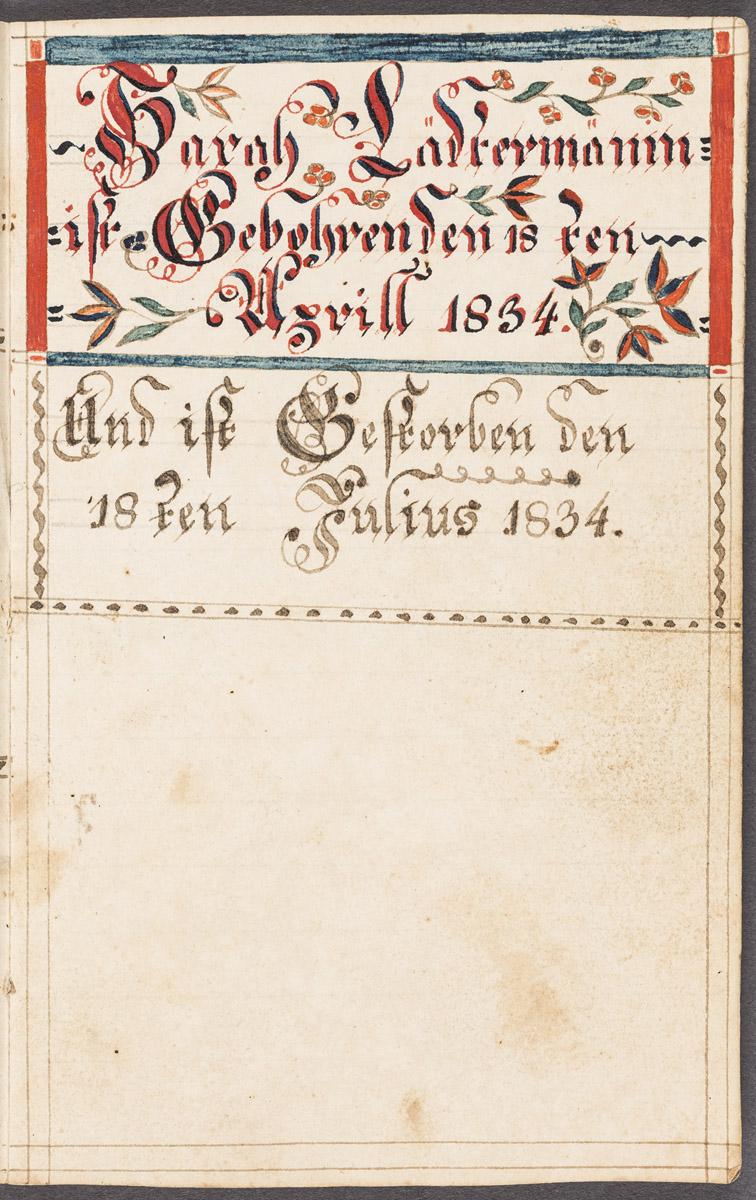 Sarah Läckermänin=
=ist = Gebohren den 18 ten
= Aprill 1834. =
Und ist Gestorben den
18 ten Julius 1834.